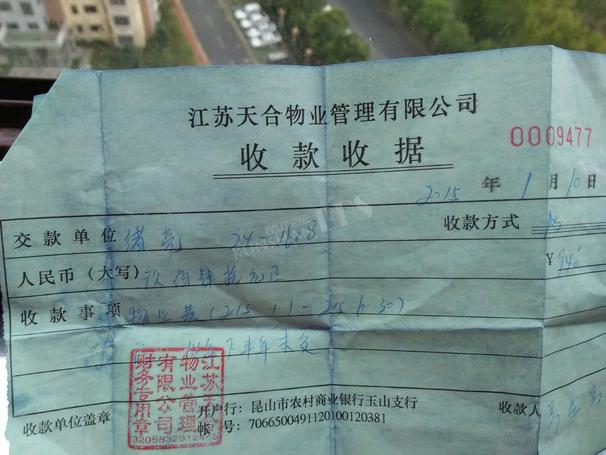 江苏天合物业管理有限公司
收款收据
0009477
2015 年 1 月 10 日
交款单位 24-1608 收款方式
人民币（大写）玖佰肆拾元正 ¥ 940
收款事项 物业费（2015.1.1-2015.6.30）
下半年未交
江苏天合
物业管理
有限公司
财务专用章
收款单位盖章
开户行：昆山市农村商业银行玉山支行
帐号：7066500491120100120381
收款人